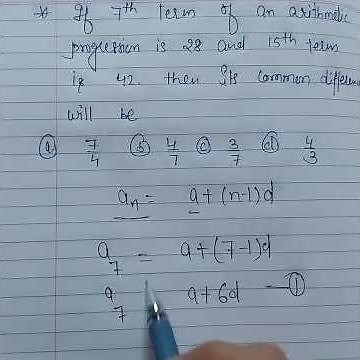 * If 7th term of an arithmetic
progression is 28 and 15th term
is 42. then Its common differen
will be
(a) 7/4 (b) 4/7 (c) 3/7 (d) 4/3
an = a + (n-1)d
a7 = a + (7-1)d
a7 a + 6d — (1)